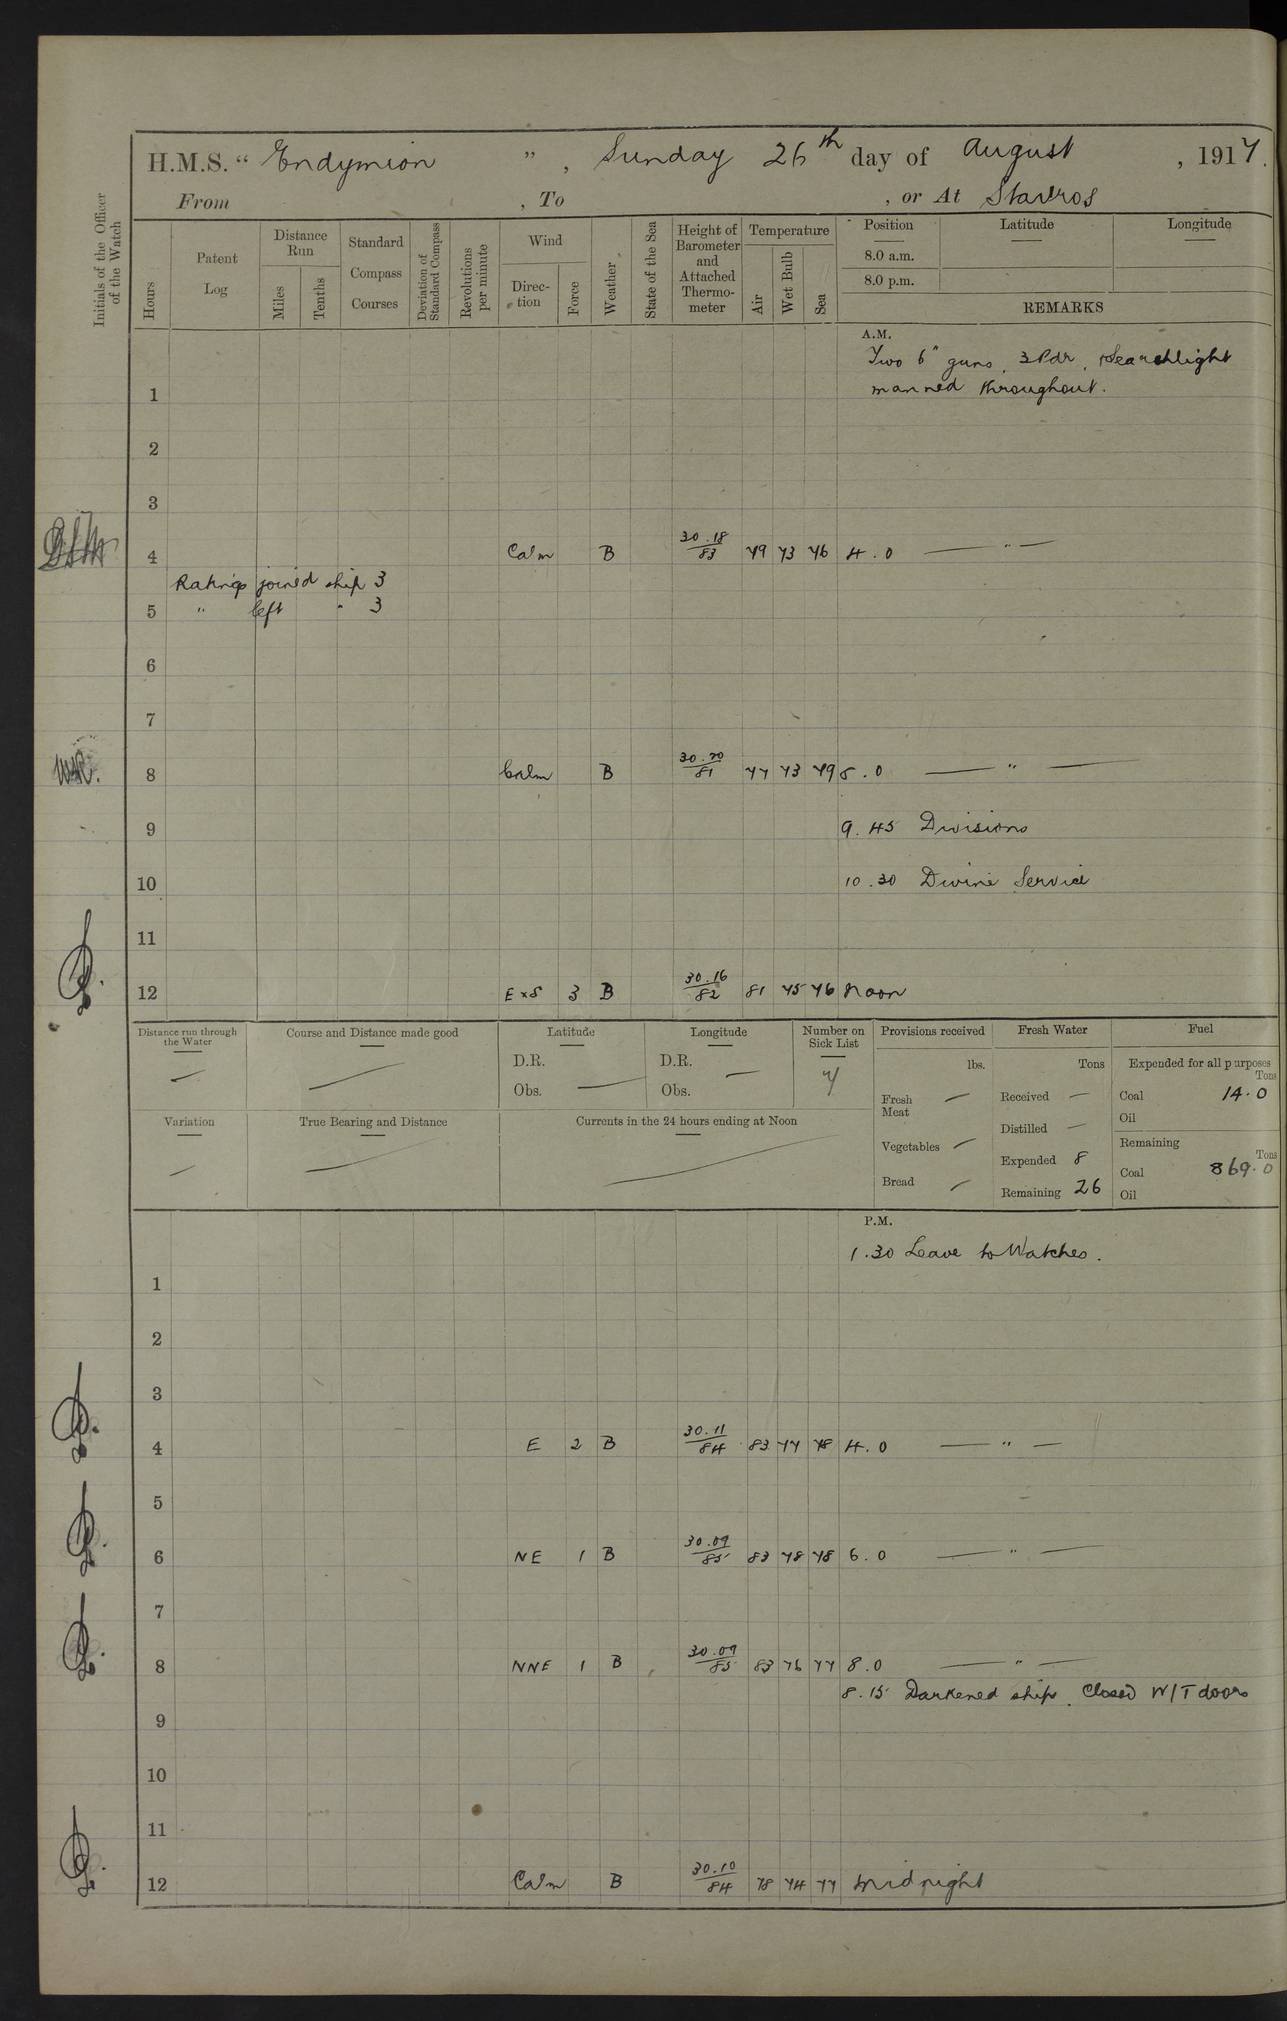 H.M.S. “ Endymion ” , Sunday 26th day of August , 1917.
From , To , or At Stavros
Initials of the Officer of the Watch
Hours
Patent Log
Distance Run
Miles
Tenths
Standard Compass Courses
Deviation of Standard Compass
Revolutions per minute
Wind
Direc-tion
Force
Weather
State of the Sea
Height of Barometer and Attached Thermo-meter
Temperature
Air
Wet Bulb
Sea
Position Latitude Longitude
8.0 a.m.
8.0 p.m.
REMARKS
A.M.
Two 6" guns, 3 Pdr, Searchlight
1 manned throughout.
2
3
4 Calm B 30.18/83 79 73 76 4.0 — " —
Ratings joined ship 3
5 " left " 3
6
7
8 Calm B 30.20/81 77 73 79 8.0 — " —
9 9.45 Divisions
10 10.30 Divine Service
11
12 E x S 3 B 30.16/82 81 75 76 Noon
Distance run through the Water —
Course and Distance made good —
Latitude
D.R.
Obs. —
Longitude
D.R. —
Obs.
Number on Sick List
7
Provisions received
lbs.
Fresh Meat —
Vegetables —
Bread —
Fresh Water
Tons
Received —
Distilled —
Expended 8
Remaining 26
Fuel
Expended for all purposes
Tons
Coal 14.0
Oil
Remaining
Tons
Coal 869.0
Oil
Variation —
True Bearing and Distance —
Currents in the 24 hours ending at Noon —
P.M.
1.30 Leave to Watches.
1
2
3
4 E 2 B 30.11/84 83 77 78 4.0 — " —
5
6 NE 1 B 30.09/85 83 78 78 6.0 — " —
7
8 NNE 1 B 30.09/85 83 76 77 8.0 — " —
8.15 Darkened ship. Closed W/T doors
9
10
11
12 Calm B 30.10/84 78 74 77 Midnight